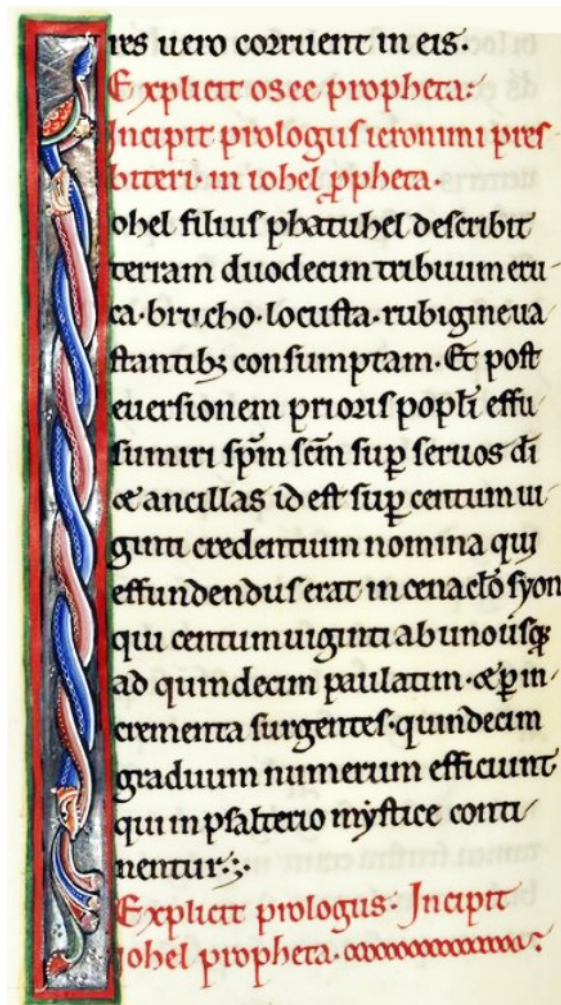 res uero corruent in eis.
Explicit osee propheta:
Incipit prologus ieronimi pres
biteri in iohel ꝓpheta.
ohel filius phatuhel describit
terram duodecim tribuum eru
ca. brucho. locusta. rubigine ua
stantibꝫ consumptam. Et post
euersionem prioris popłi effu
sum iri sp̄m sc̄m suꝑ seruos dī
& ancillas id est suꝑ centum ui
ginti credentium nomina qui
effundendus erat in cenacło syon
qui centum uiginti ab uno usqꝫ
ad quindecim paulatim. & ꝑ in
crementa surgentes. quindecim
graduum numerum efficiunt
qui in psalterio mystice conti
nentur:
Explicit prologus. Incipit
iohel propheta.